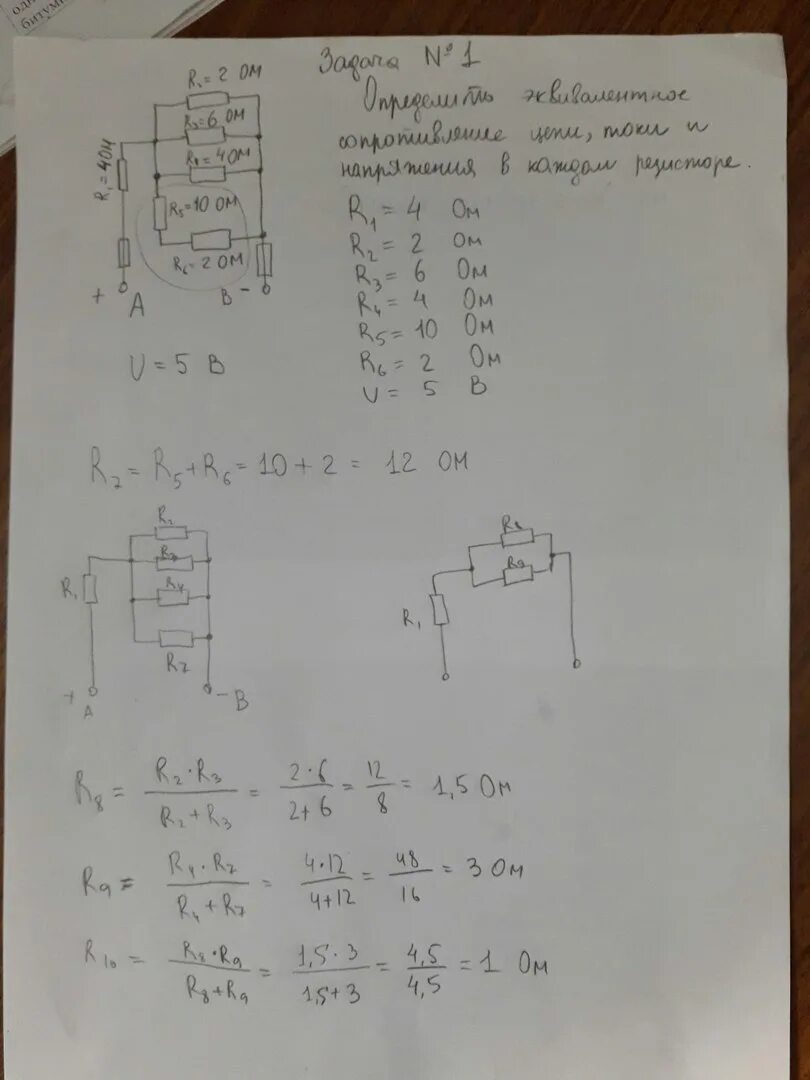 битум
Задача № 1
Определить эквивалентное
сопротивление цепи, токи и
напряжения в каждом резисторе.
R₂ = 2 ОМ
R₃ = 6 ОМ
R₄ = 4 ОМ
R₁ = 4 ОМ
R₅ = 10 ОМ
R₆ = 2 ОМ
+ A
B -
U = 5 В
R₁ = 4 Ом
R₂ = 2 Ом
R₃ = 6 Ом
R₄ = 4 Ом
R₅ = 10 Ом
R₆ = 2 Ом
U = 5 В
R₇ = R₅ + R₆ = 10 + 2 = 12 ОМ
R₂
R₃
R₄
R₁
R₇
+ A
- B
R₈
R₉
R₁
R₈ = R₂·R₃ / R₂+R₃ = 2·6 / 2+6 = 12 / 8 = 1,5 Ом
R₉ = R₄·R₇ / R₄+R₇ = 4·12 / 4+12 = 48 / 16 = 3 Ом
R₁₀ = R₈·R₉ / R₈+R₉ = 1,5·3 / 1,5+3 = 4,5 / 4,5 = 1 Ом